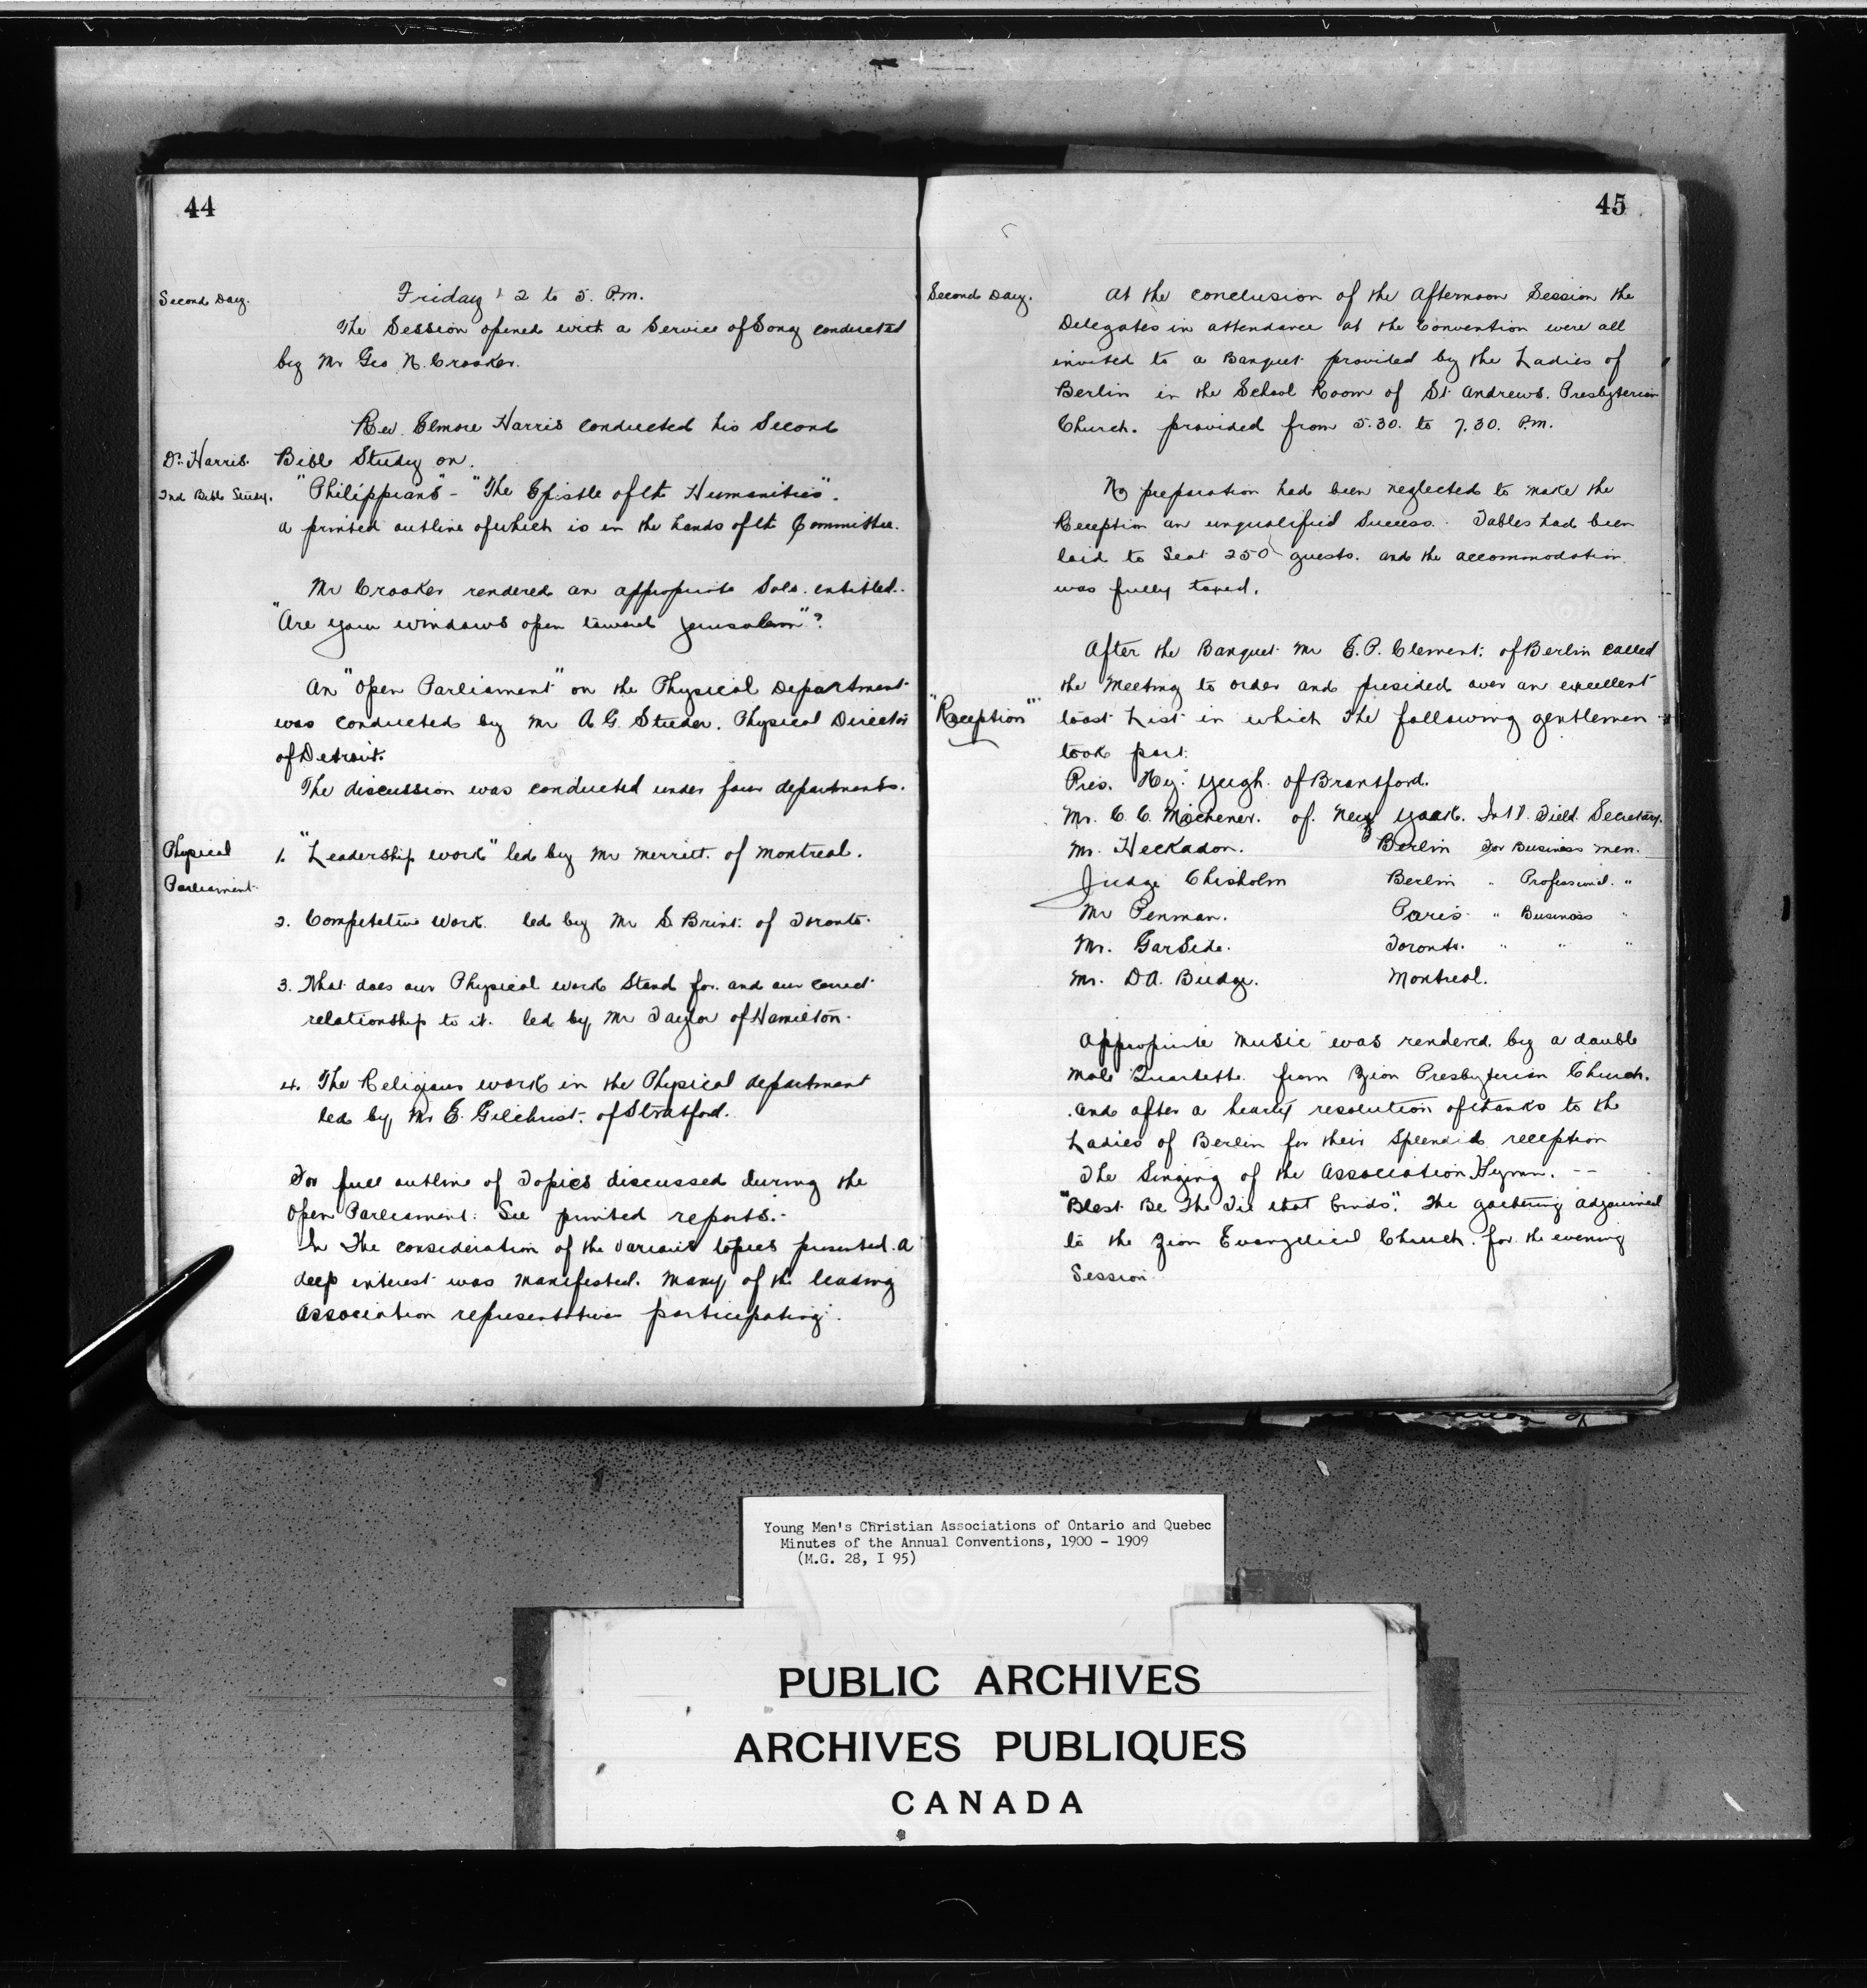 44
Second Day.
Friday 2 to 5. P.m.
The Session opened with a Service of Song conducted
by Mr Geo N. Crooker.
Rev. Elmore Harris conducted his Second
Dr. Harris. Bible Study on.
2nd Bible Study. "Philippians" - "The Epistle of the Humanities".
a printed outline of which is in the hands of the Committee.
Mr Crooker rendered an appropriate Solo. entitled.
"Are your windows open toward Jerusalem"?
An "Open Parliament" on the Physical Department
was conducted by Mr A. G. Studer. Physical Director
of Detroit.
The discussion was conducted under four departments.
Physical
Parliament.
1. "Leadership work" led by Mr Merritt. of Montreal.
2. Competetive Work. led by Mr S Brint. of Toronto.
3. What does our Physical work Stand for. and our correct
relationship to it. led by Mr Taylor of Hamilton.
4. The Religious work in the Physical department
led by Mr E. Gilchrist. of Stratford.
For full outline of Topics discussed during the
Open Parliament. See printed reports.
In The consideration of the various topics presented. a
deep interest was manifested. Many of the leading
Association representatives participating.
45
Second Day.
At the conclusion of the Afternoon Session the
Delegates in attendance at the Convention were all
invited to a Banquet provided by the Ladies of
Berlin in the School Room of St. Andrews. Presbyterian
Church. provided from 5.30. to 7.30. P.m.
No preparation had been neglected to make the
Reception an unqualified Success. Tables had been
laid to Seat 250 guests. and the accommodation.
was fully taxed.
After the Banquet Mr E. P. Clement. of Berlin called
the Meeting to order and presided over an excellent
"Reception" toast List in which the following gentlemen
took part.
Pres. Hy. Yeigh. of Brantford.
Mr. C. C. Michener. of. New York. Int'l. Field. Secretary.
Mr. Heckadon. Berlin for Business men.
Judge Chisholm Berlin " Professional. "
Mr Penman. Paris " Business "
Mr. GarSide. Toronto. " " "
Mr. D A. Budge. Montreal.
Appropriate music was rendered. by a double
Male Quartette. from Zion Presbyterian Church.
and after a hearty resolution of thanks to the
Ladies of Berlin for their Splendid reception
The Singing of the Association Hymn. --
"Blest Be The Tie that binds". The gathering adjourned
to the Zion Evangelical Church. for the evening
Session.
Young Men's Christian Associations of Ontario and Quebec
Minutes of the Annual Conventions, 1900 - 1909
(M.G. 28, I 95)
PUBLIC ARCHIVES
ARCHIVES PUBLIQUES
CANADA